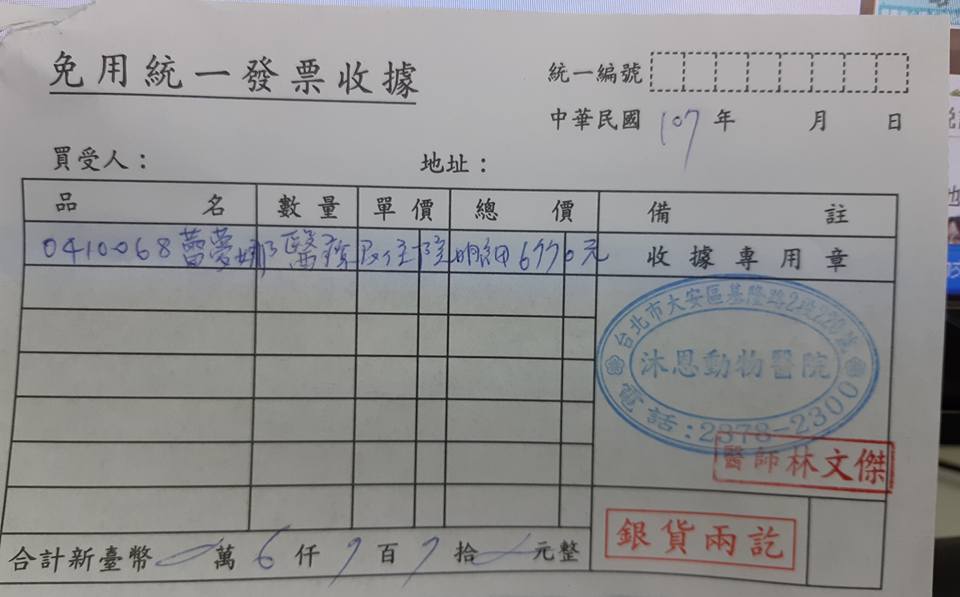 免用統一發票收據
統一編號
中華民國 107 年 月 日
買受人： 地址：
品名 數量 單價 總價 備註
0410068 蕾夢娜 醫療及住院明細 6770元 收據專用章
台北市大安區基隆路2段220號
沐恩動物醫院
電話：2378-2300
醫師林文傑
銀貨兩訖
合計新臺幣 0 萬 6 仟 7 百 7 拾 0 元整